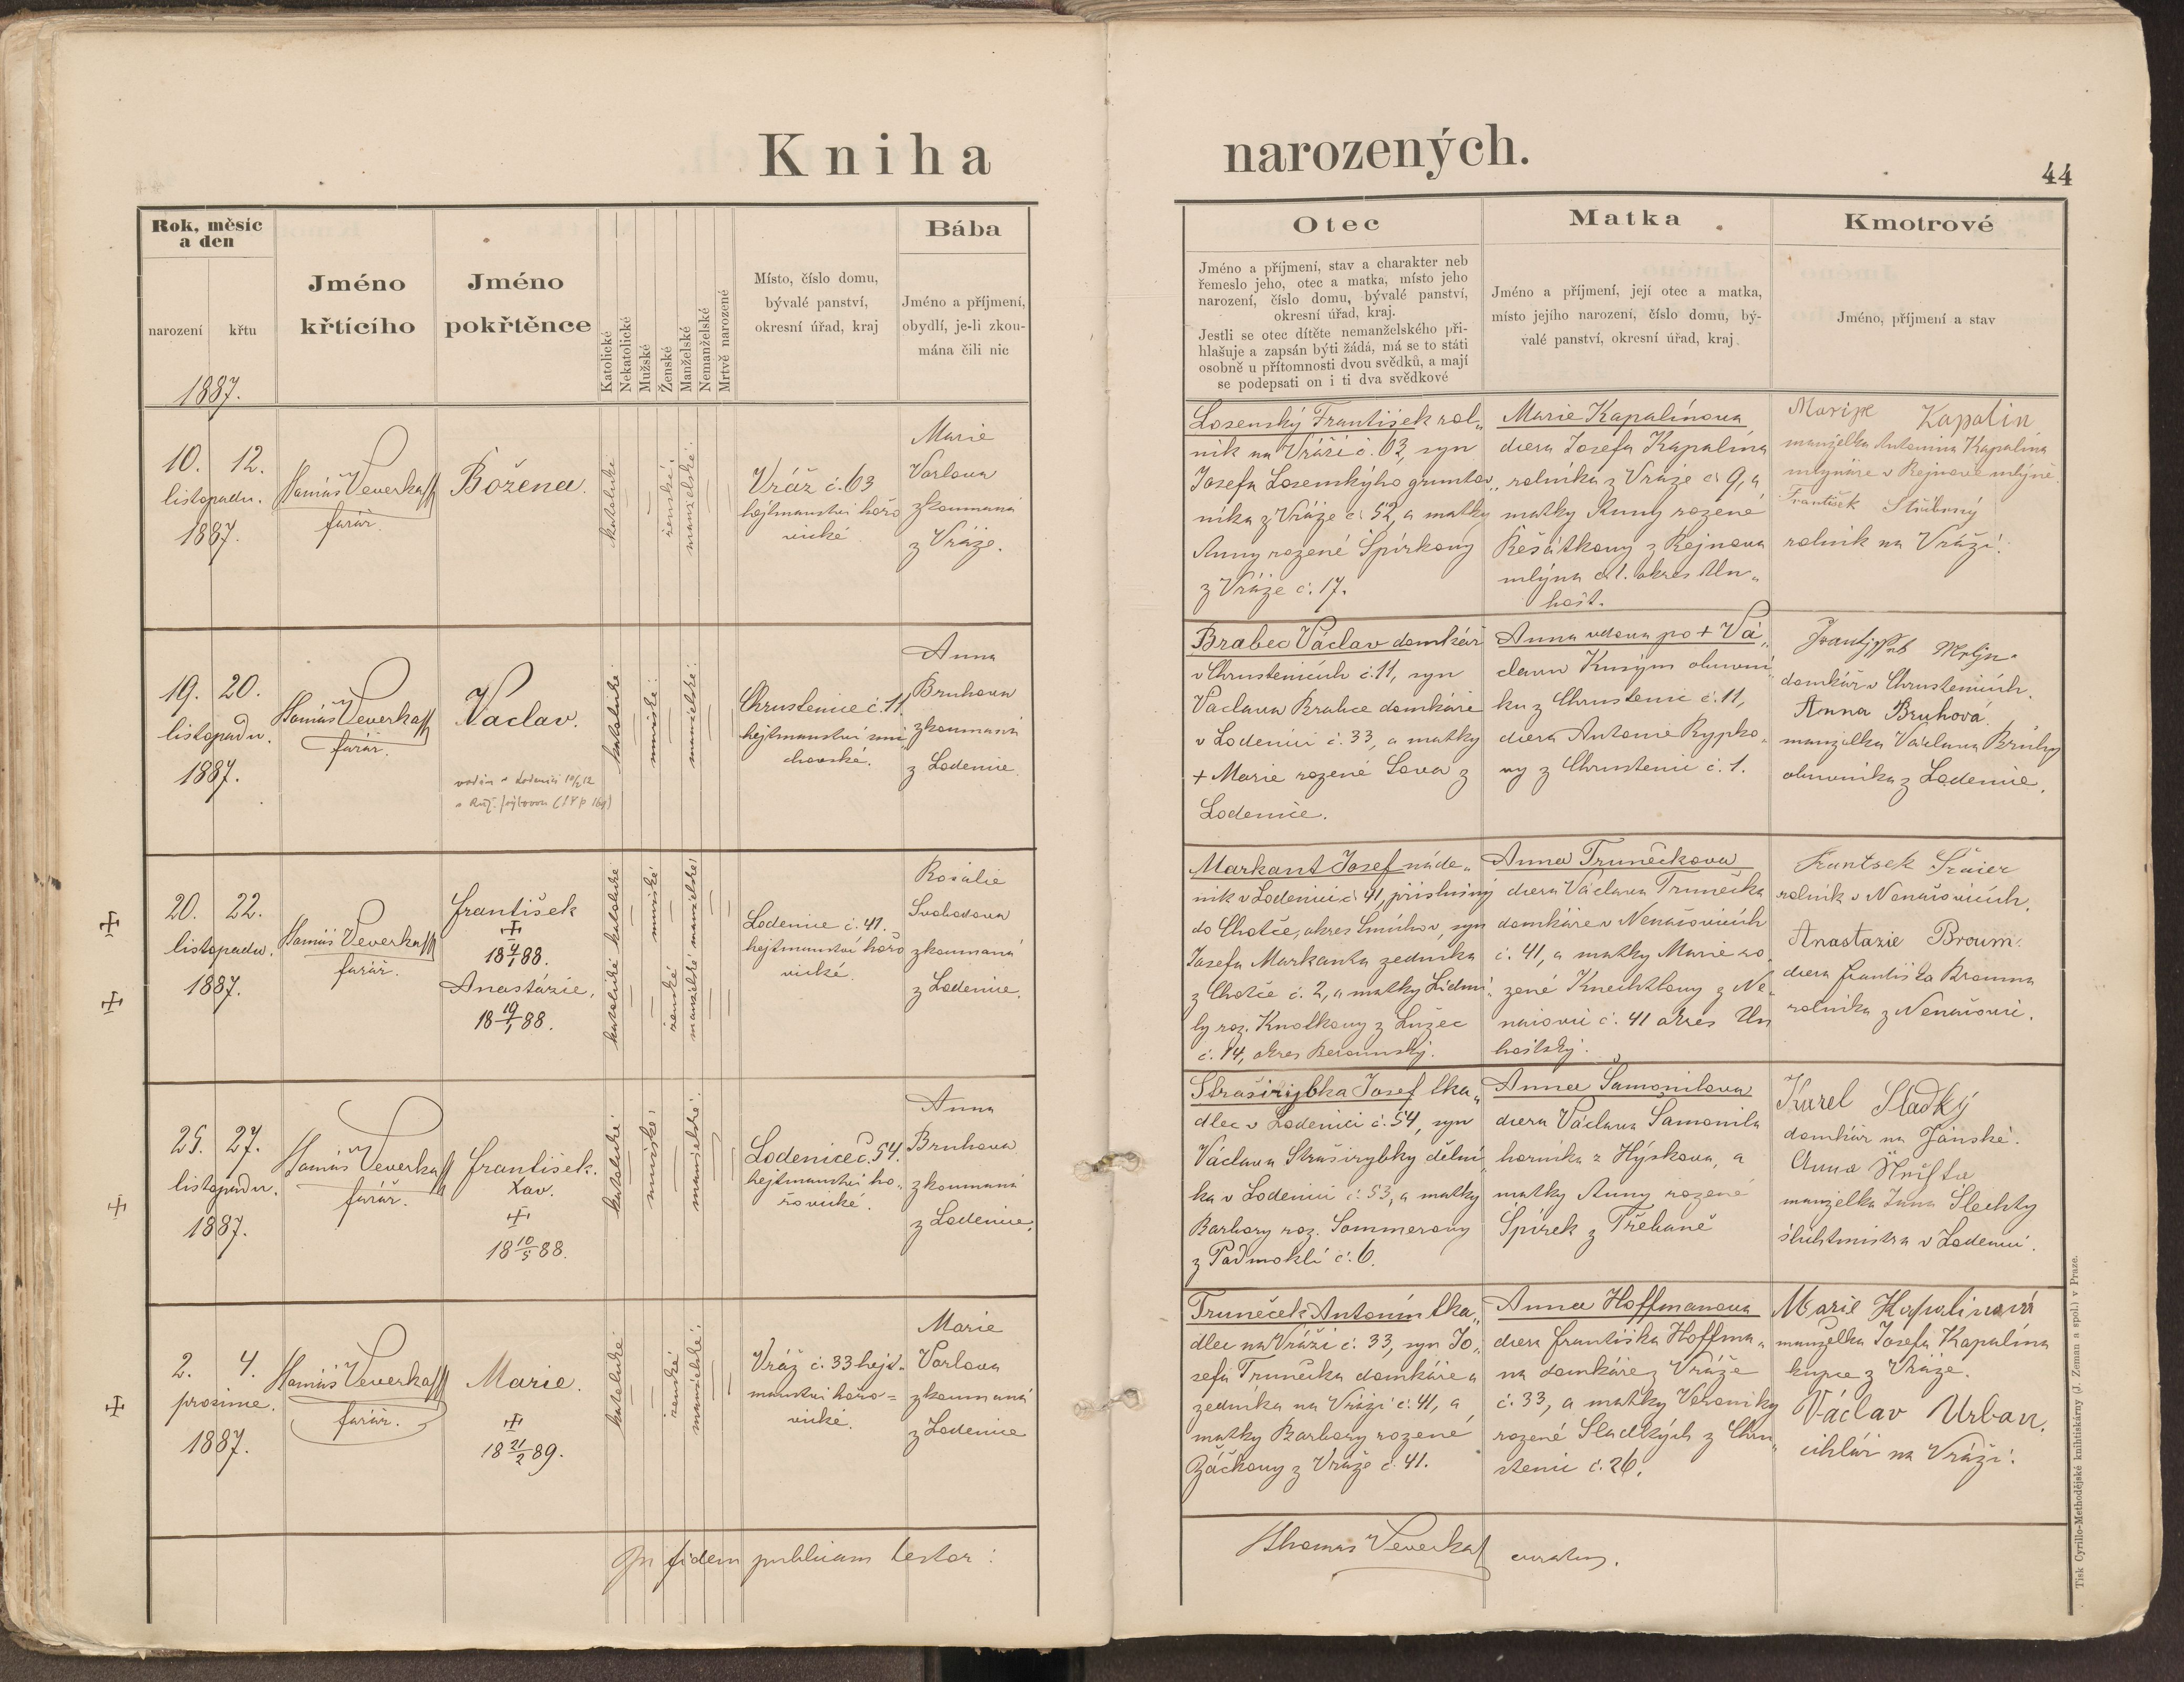 Kniha narozených.
44
Rok, měsíc
a den
narození
křtu
1887.
Jméno
křtícího
Jméno
pokřtěnce
Katolické
Nekatolické
Mužské
Ženské
Manželské
Nemanželské
Mrtvě narozené
Místo, číslo domu,
bývalé panství,
okresní úřad, kraj
Bába
Jméno a příjmení,
obydlí, je-li zkou-
mána čili nic
Otec
Jméno a příjmení, stav a charakter neb
řemeslo jeho, otec a matka, místo jeho
narození, číslo domu, bývalé panství,
okresní úřad, kraj.
Jestli se otec dítěte nemanželského při-
hlašuje a zapsán býti žádá, má se to státi
osobně u přítomnosti dvou svědků, a mají
se podepsati on i ti dva svědkové
Matka
Jméno a příjmení, její otec a matka,
místo jejího narození, číslo domu, bý-
valé panství, okresní úřad, kraj
Kmotrové
Jméno, příjmení a stav
10. 12.
listopadu.
1887.
Tomáš Veverka
farář.
Božena.
katolické
ženské
manželské
Vráž č. 63
hejtmanství hořo
vické
Marie
Vorlova
zkoumaná
z Vráže.
Losenský František rol„
ník na Vráži č. 63, syn
Josefa Losenskýho gruntov„
níka z Vráže č. 52, a matky
Anny rozené Špírkovy
z Vráže č. 17.
Marie Kapalínova
dcera Josefa Kapalína
rolníka z Vráže č. 9, a
matky Anny rozené
Řešátkovy z Rejnova
mlýna č. 1. okres Un„
hošť.
Marije Kapalin
manželka Antonína Kapalína
mlynáře v Rejnově mlýně.
František Stříbrný
rolník na Vráži.
19. 20.
listopadu.
1887.
Tomáš Veverka
farář.
Václav.
katolické
mužské
manželské
Chrustenice č. 11.
hejtmanství smí
chovské.
Anna
Bruhova
zkoumaná
z Lodenice.
Brabec Václav domkář
v Chrustenicích č. 11, syn
Václava Brabce domkáře
v Lodenici č. 33, a matky
+ Marie rozené Sova z
Lodenice.
Anna vdova po + Vá„
clavu Kusým obuvní„
ku z Chrustenic č. 11,
dcera Antonie Rypko„
vy z Chrustenic č. 1.
domkář v Chrustenicích.
Anna Bruhová.
manželka Václava Brůhy
obuvníka z Lodenice.
20. 22.
listopadu.
1887.
Tomáš Veverka
farář.
František
18 4/1 88.
Anastázie,
18 19/1 88.
katolické katolické
mužské
ženské
manželské manželské
Lodenice č. 41.
hejtmanství hořo
vické.
Rosalie
Svobodova
zkoumaná
z Lodenice.
Markant Josef náde„
ník v Lodenici č. 41, příslušný
do Chotče, okres Smíchov, syn
Josefa Markanta zedníka
z Chotče č. 2, a matky Lidmi„
ly roz. Knotkovy z Lužec
č. 14, okres Berounský.
Anna Trunečkova
dcera Václava Trunečka
domkáře v Nenačovicích
č. 41, a matky Marie ro„
zené Knechtlovy z Ne„
načovic č. 41 okres Un
hošťský.
Frantsek Šraier
rolník v Nenačovicích.
Anastazie Broum.
dcera Františka Broumа
rolníka z Nenačovic.
25. 27.
listopadu.
1887.
Tomáš Veverka
farář.
František.
Xav.
18 10/5 88.
katolické
mužské
manželské
Lodenice č. 54.
hejtmanství ho„
řovické.
Anna
Bruhova
zkoumaná
z Lodenice.
Straširybka Josef tka„
dlec v Lodenici č. 54, syn
Václava Straširybky dělní„
ka v Lodenici č. 53, a matky
Barbory roz. Sommerovy
z Podmoklí č. 6.
Anna Šamonilova
dcera Václava Šamonila
horníka z Hýskova, a
matky Anny rozené
Špírek z Třebaně
Karel Sladký
domkář na Jánské.
Anna
manželka Jana Šlechty
šichtmistra v Lodenici.
2. 4.
prosince.
1887.
Tomáš Veverka
farář.
Marie.
18 21/2 89.
katolické
ženské
manželské
Vráž č. 33 hejt„
manství hořo=
vické.
Marie
Vorlova
zkoumaná
z Lodenice
Truneček Antonín tka„
dlec na Vráži č. 33, syn Jo„
sefa Trunečka domkáře a
zedníka na Vráži č. 41, a
matky Barbory rozené
Žáčkovy z Vráže č. 41.
Anna Hoffmanova
dcera Františka Hoffma„
na domkáře z Vráže
č. 33, a matky Veroniky
rozené Sladkých z Chru„
stenic č. 26.
Marie Kapalinová
manželka Josefa Kapalína
kupce z Vráže.
Václav Urban.
cihlář na Vráži.
In fidem publicam testor:
Thomas Veverka curatus.
Tisk Cyrillo-Methodějské knihtiskárny (J. Zeman a spol.) v Praze.